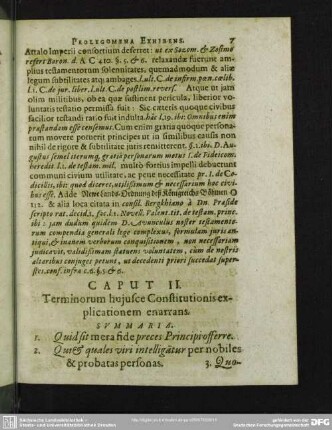 PROLEGOMENA EXHIBENS. 7
Attalo Imperii consortium deferret: ut ex Sozom. & Zosimo
refert Baron. d. A C 410. §. 5. & 6. relaxandæ fuerunt am-
plius testamentorum solennitates, quemadmodum & aliæ
legum subtilitates atq; ambages. l. ult. C. de infirm. pœn. cœlib.
l. 1. C. de jur. liber. l. ult. C. de postlim. revers. Atque ut jam
olim militibus, ob ea quæ sustinent pericula, liberior vo-
luntatis testatio permissa fuit: Sic cæteris quoque civibus
facilior testandi ratio fuit indulta. hâc l. 19. ibi: Omnibus enim
præstandum esse censemus. Cum enim gratia quoque persona-
rum movere potuerit principes ut in similibus causis non
nihil de rigore & subtilitate juris remitterent. §. 1. ibi. D. Au-
gustus semel iterumq; gratiâ personarum motus I. de Fideicom.
heredit. I. de testam. mil. multò fortius impelli debuerunt
communi civium utilitate, ac pene necessitate pr. I. de Co-
dicillis, ibi: quod diceret, utilissimum & necessarium hoc civi-
bus esse. Adde
312. & alia loca citata in consil. Bergkhana à Dn. Præside
scripto rat. decid. 1. §. 1. Novell. Valent. tit. de testam. princ.
ibi: jam dudum quidem D. Avunculus noster testamento-
rum compendia generali lege complexus, formulam juris an-
tiqui, & inanem verborum conquisitionem, non necessariam
judicavit, validissimam statuens voluntatem, cùm de nostris
altaribus conjuges petunt, ut decedenti priori succedat super-
stes. conf. infra c. 2. §. 5. & 6.
CAPUT II.
Terminorum hujusce Constitutionis ex-
plicationem enarrans.
SUMMARIA.
1. Quid sit mera fide preces Principi offerre.
2. Qui & quales viri intelligātur per nobiles
& probatas personas. 3. Quo-